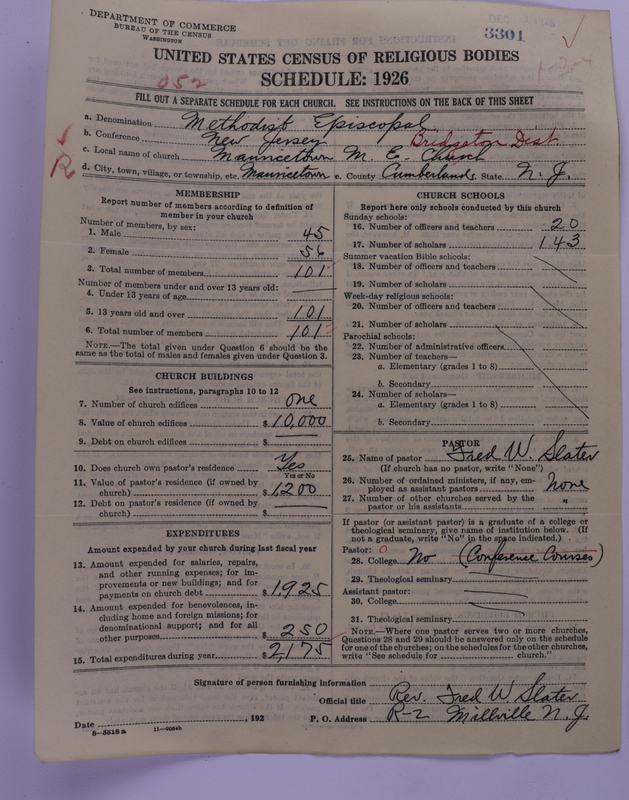 DEPARTMENT OF COMMERCE
BUREAU OF THE CENSUS
WASHINGTON
3301
UNITED STATES CENSUS OF RELIGIOUS BODIES
SCHEDULE: 1926
052
FILL OUT A SEPARATE SCHEDULE FOR EACH CHURCH. SEE INSTRUCTIONS ON THE BACK OF THIS SHEET
a. Denomination Methodist Episcopal
b. Conference New Jersey Bridgeton Dist.
c. Local name of church Mauricetown M. E. Church
R d. City, town, village, or township, etc. Mauricetown e. County Cumberland State N. J.
MEMBERSHIP
Report number of members according to definition of
member in your church
Number of members, by sex:
1. Male 45
2. Female 56
3. Total number of members 101
Number of members under and over 13 years old:
4. Under 13 years of age
5. 13 years old and over 101
6. Total number of members 101
NOTE.—The total given under Question 6 should be the
same as the total of males and females given under Question 3.
CHURCH BUILDINGS
See instructions, paragraphs 10 to 12
7. Number of church edifices one
8. Value of church edifices $10,000
9. Debt on church edifices $
10. Does church own pastor's residence Yes
Yes or No
11. Value of pastor's residence (if owned by
church) $1200
12. Debt on pastor's residence (if owned by
church) $
EXPENDITURES
Amount expended by your church during last fiscal year
13. Amount expended for salaries, repairs,
and other running expenses; for im-
provements or new buildings; and for
payments on church debt $1,925
14. Amount expended for benevolences, in-
cluding home and foreign missions; for
denominational support; and for all
other purposes $250
15. Total expenditures during year $2,175
CHURCH SCHOOLS
Report here only schools conducted by this church
Sunday schools:
16. Number of officers and teachers 20
17. Number of scholars 143
Summer vacation Bible schools:
18. Number of officers and teachers
19. Number of scholars
Week-day religious schools:
20. Number of officers and teachers
21. Number of scholars
Parochial schools:
22. Number of administrative officers
23. Number of teachers—
a. Elementary (grades 1 to 8)
b. Secondary
24. Number of scholars—
a. Elementary (grades 1 to 8)
b. Secondary
PASTOR
25. Name of pastor Fred W. Slater
(If church has no pastor, write "None")
26. Number of ordained ministers, if any, em-
ployed as assistant pastors none
27. Number of other churches served by the
pastor or his assistants "
If pastor (or assistant pastor) is a graduate of a college or
theological seminary, give name of institution below. (If
not a graduate, write "No" in the space indicated.)
Pastor: 0
28. College No (Conference Courses)
29. Theological seminary
Assistant pastor:
30. College
31. Theological seminary
NOTE.—Where one pastor serves two or more churches,
Questions 28 and 29 should be answered only on the schedule
for one of the churches; on the schedules for the other churches,
write "See schedule for church."
Signature of person furnishing information
Official title Rev. Fred W Slater
Date , 192 P. O. Address R-2 Millville N. J.
8-5518a 11-9064b